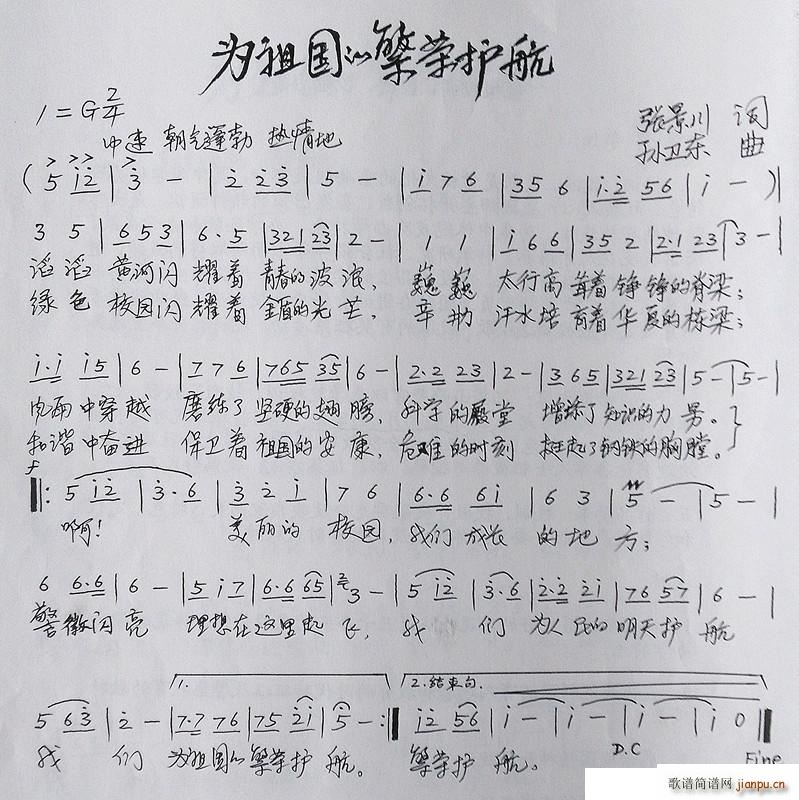 为祖国的繁荣护航
1=G 2/4
张景川 词
中速 朝气蓬勃 热情地
孙卫东 曲
( 5 i2 | 3 - | 2 23 | 5 - | i 7 6 | 35 6 | i·2 56 | i - )|
3 5 | 6 5 3 | 6·5 | 321 23 | 2 - | 1 1 | i 6 6 | 35 2 | 2·1 23 | 3 - |
滔滔 黄河闪 耀着 青春的波浪, 巍巍 太行高 耸着 铮铮的脊梁;
绿色 校园闪 耀着 金盾的光芒, 辛勤 汗水培 育着 华夏的栋梁;
i·i i5 | 6 - | 7 7 6 | 765 35 | 6 - | 2·2 23 | 2 - | 3 6 5 | 321 23 | 5 - | 5 - |
风雨 中穿越 磨练了 坚硬的翅膀, 科学的殿堂 增添了知识的力量。
和谐 中奋进 保卫着 祖国的安康, 危难的时刻 挺起了钢铁的胸膛。
f
|: 5 i2 | 3·6 | 3 2 i | 7 6 | 6·6 6i | 6 3 | 5 - | 5 - |
啊! 美丽的 校园, 我们 成长 的地 方;
6 6·6 | 6 - | 5 i 7 | 6·6 65 | 3 - | 5 i2 | 3·6 | 2·2 2i | 76 57 | 6 - |
警徽闪亮 理想在这里起飞, 我们 为人民的明天护航
1.
2.结束句.
5 63 | 2 - | 7·7 76 | 75 2i | 5 - :| i2 56 | i - | i - | i - | i 0 ||
我们 为祖国的繁荣护航。 繁荣护航。
D.C
Fine
歌谱简谱网
www.jianpu.cn